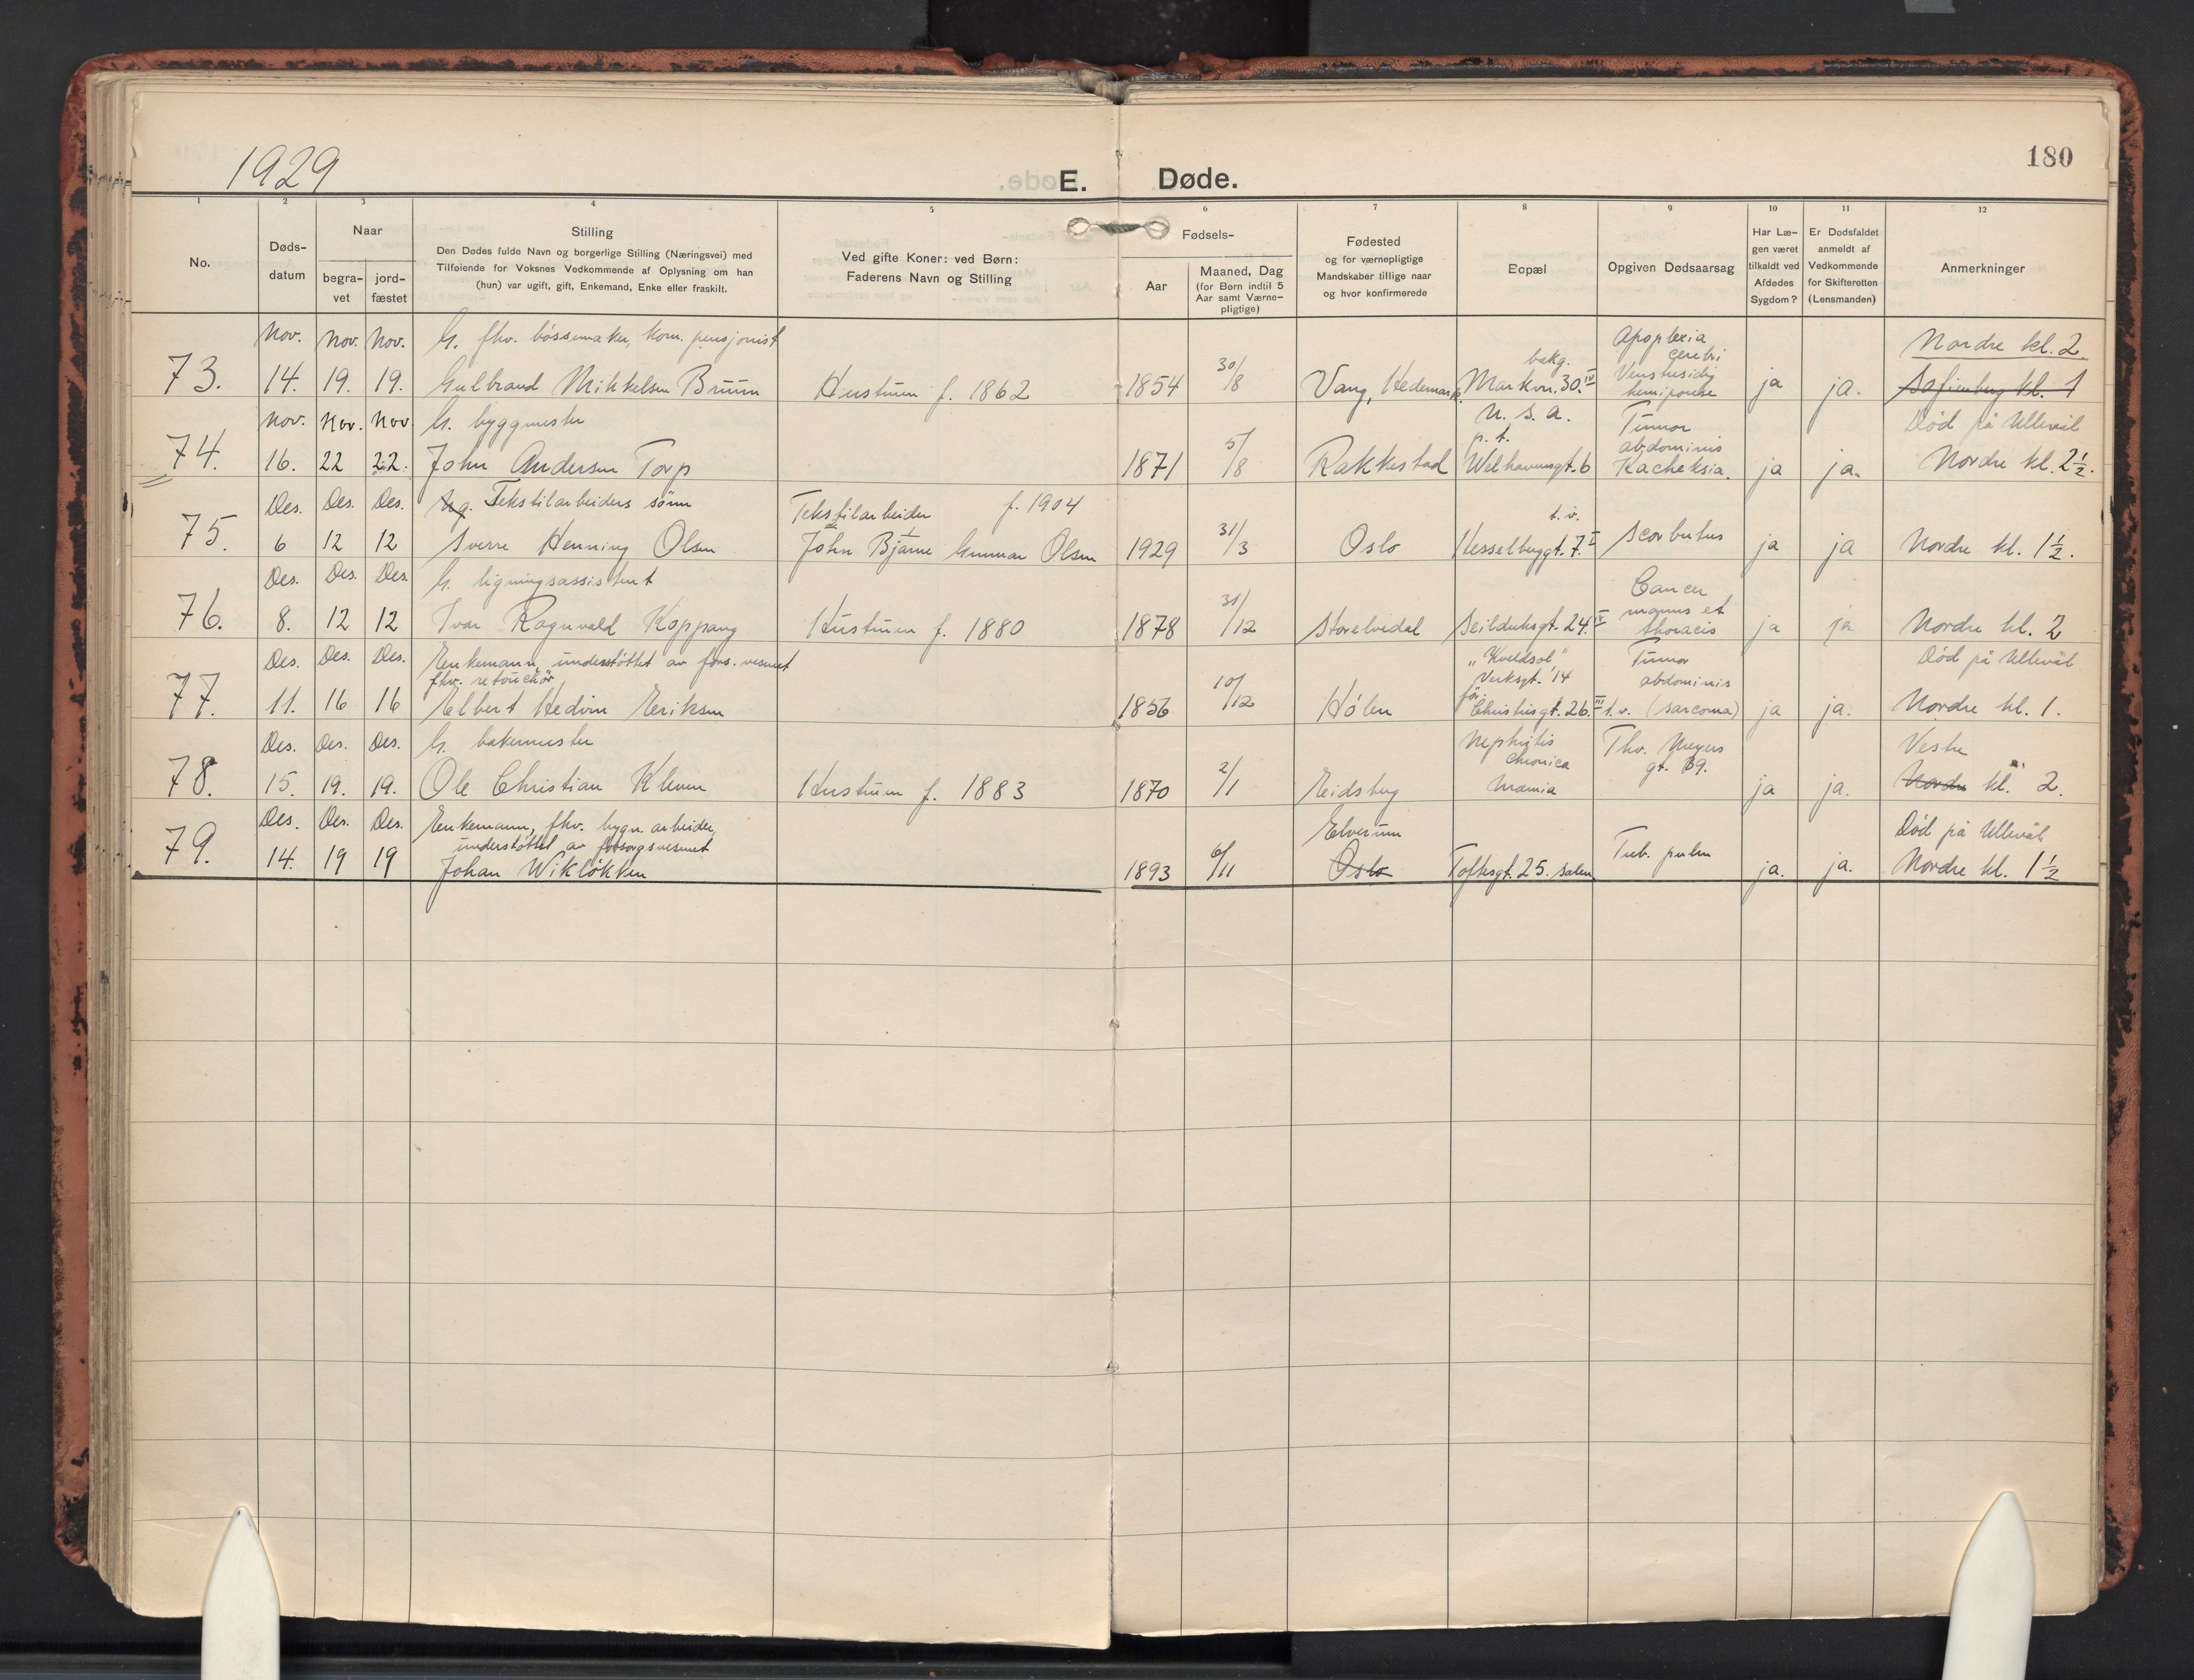 1929
E. Døde.
180
1 2 3 4 5 6 7 8 9 10 11 12
No.
Døds-
datum
Naar
begra-
vet
jord-
fæstet
Stilling
Den Dødes fulde Navn og borgerlige Stilling (Næringsvei) med
Tilføiende for Voksnes Vedkommende af Oplysning om han
(hun) var ugift, gift, Enkemand, Enke eller fraskilt.
Ved gifte Koner: ved Børn:
Faderens Navn og Stilling
Fødsels-
Aar
Maaned, Dag
(for Børn indtil 5
Aar samt Værne-
pligtige)
Fødested
og for værnepligtige
Mandskaber tillige naar
og hvor konfirmerede
Bopæl
Opgiven Dødsaarsag
Har Læ-
gen været
tilkaldt ved
Afdødes
Sygdom?
Er Dødsfaldet
anmeldt af
Vedkommende
for Skifteretten
(Lensmanden)
Anmerkninger
73.
Nov. 14.
Nov. 19.
Nov. 19.
G. fhv. bøssemaker, kom. pensjonist
Gulbrand Mikkelsen Bruun
Hustruen f. 1862
1854
30/8
Vang, Hedemark.
bakg.
Markvn. 30. IV
Apoplexia
cerebri
Venstresidig
hemiparese
ja
ja.
Nordre kl. 2
Sofienberg kl. 1
74.
Nov. 16.
Nov. 22
Nov. 22.
G. byggmester
John Andersen Torp
1871
5/8
Rakkestad
U. S. A.
p. t.
Welhavensgt. 6
Tumor
abdominis
Kacheksia.
ja
ja.
Død på Ullevål
Nordre kl. 2½.
75.
Des. 6
Des. 12
Des. 12
Ug. Tekstilarbeiders sønn
Sverre Henning Olsen
Tekstilarbeider f. 1904
John Bjarne Gunnar Olsen
1929
31/3
Oslo
t. v.
Hesselberggt. 7. I
Scorbutus
ja
ja
Nordre kl. 1½.
76.
Des. 8.
Des. 12
Des. 12
G. ligningsassistent
Ivar Ragnvald Koppang
Hustruen f. 1880
1878
31/12
Storelvedal
Seilduksgt. 24. IV
Cancer
manus et
thoracis
ja
ja
Nordre kl. 2
77.
Des. 11.
Des. 16
Des. 16
Enkemann, understøttet av fors. vesenet
fhv. retouchør
Elbert Hedvin Eriksen
1856
10/12
Hølen
"Kveldsol"
Verksgt. 14
før:
Christiesgt. 26. III t. v.
Tumor
abdominis
(sarcoma)
ja
ja.
Død på Ullevål
Nordre kl. 1.
78.
Des. 15.
Des. 19.
Des. 19.
G. bakermester
Ole Christian Kleven
Hustruen f. 1883
1870
2/1
Eidsberg
Nephritis
chronica
Uramia
Thv. Meyers
gt. 39.
ja
ja.
Vestre
Nordre kl. 2.
79.
Des. 14.
Des. 19
Des. 19
Enkemann, fhv. bygn. arbeider,
understøttet av forsorgsvesenet
Johan Wikløkken
1893
6/11
Elverum
Oslo
Toftesgt. 25. salen
Tub. pulm
ja.
ja.
Død på Ullevål
Nordre kl. 1½